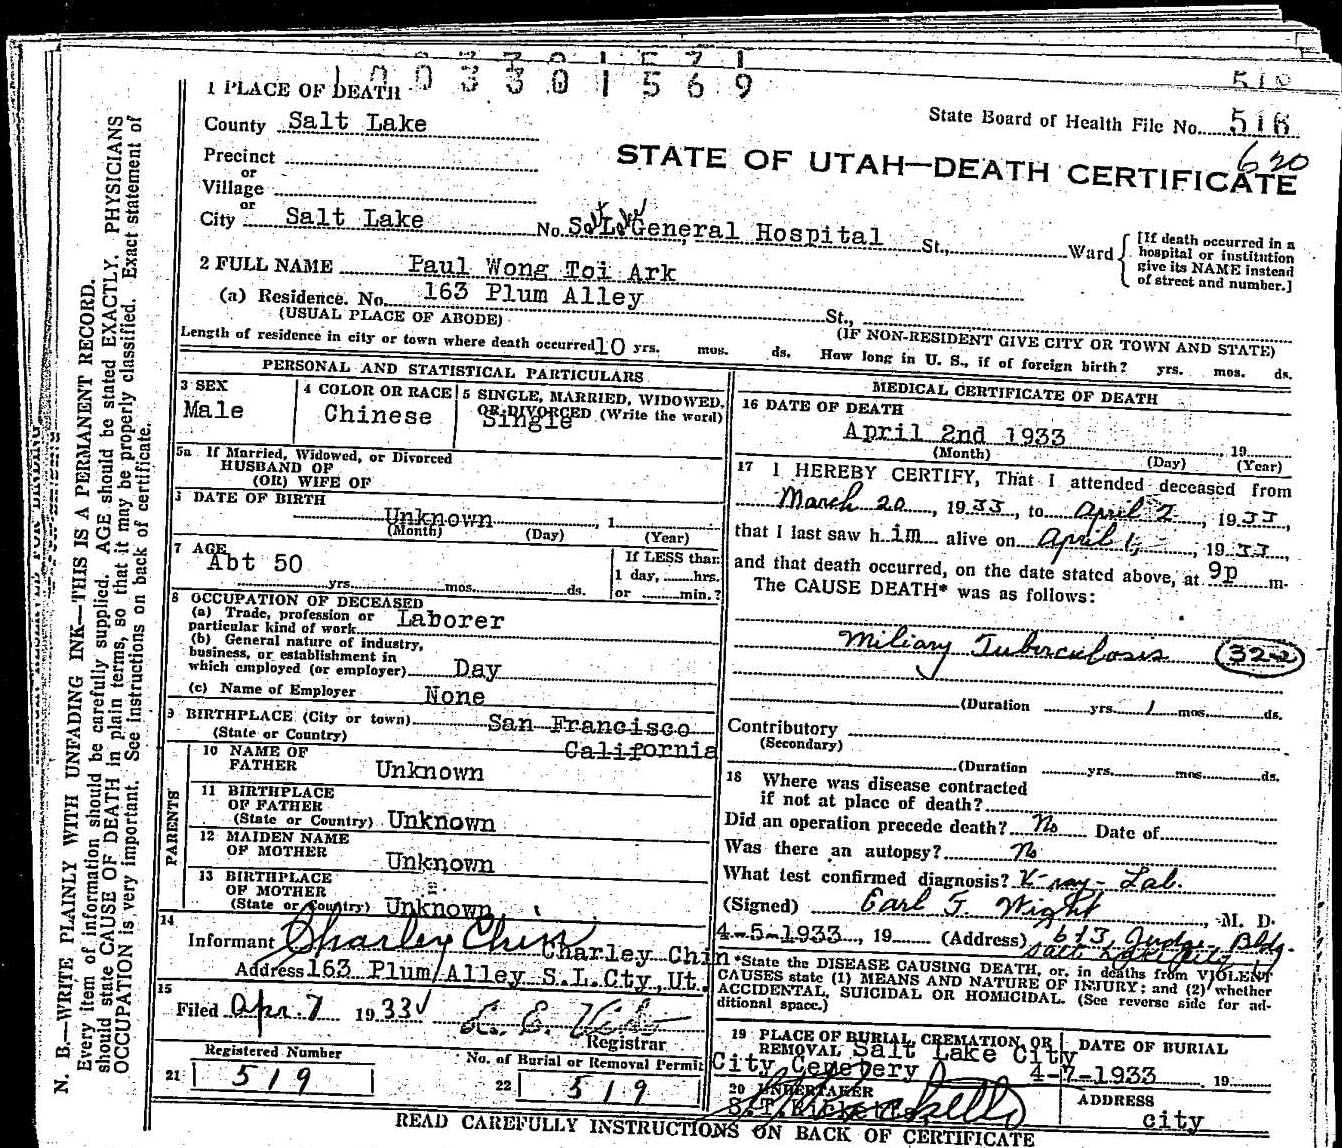 1003301569
516
1 PLACE OF DEATH
State Board of Health File No. 516
620
County Salt Lake
STATE OF UTAH—DEATH CERTIFICATE
Precinct
or
Village
or
City Salt Lake No. S. L. General Hospital St., Ward
Salt Lake
[If death occurred in a
hospital or institution
give its NAME instead
of street and number.]
2 FULL NAME Paul Wong Toi Ark
(a) Residence. No. 163 Plum Alley St.,
(USUAL PLACE OF ABODE) (IF NON-RESIDENT GIVE CITY OR TOWN AND STATE)
Length of residence in city or town where death occurred 10 yrs. mos. ds. How long in U. S., if of foreign birth? yrs. mos. ds.
PERSONAL AND STATISTICAL PARTICULARS
3 SEX
Male
4 COLOR OR RACE
Chinese
5 SINGLE, MARRIED, WIDOWED,
OR DIVORCED (Write the word)
Single
5a If Married, Widowed, or Divorced
HUSBAND OF
(OR) WIFE OF
DATE OF BIRTH
Unknown , 1
(Month) (Day) (Year)
7 AGE
Abt 50
yrs. mos. ds.
If LESS than
1 day, hrs.
or min.?
8 OCCUPATION OF DECEASED
(a) Trade, profession or
particular kind of work Laborer
(b) General nature of industry,
business, or establishment in
which employed (or employer) Day
(c) Name of Employer None
9 BIRTHPLACE (City or town) San Francisco
(State or Country) California
PARENTS
10 NAME OF
FATHER Unknown
11 BIRTHPLACE
OF FATHER
(State or Country) Unknown
12 MAIDEN NAME
OF MOTHER Unknown
13 BIRTHPLACE
OF MOTHER
(State or Country) Unknown
14
Informant Charley Chin Charley Chin
Address 163 Plum Alley S.L.Cty, Ut.
15
Filed Apr. 7 1933
Registrar
Registered Number
21 519
No. of Burial or Removal Permit
22 519
MEDICAL CERTIFICATE OF DEATH
16 DATE OF DEATH
April 2nd 1933 , 19
(Month) (Day) (Year)
17 I HEREBY CERTIFY, That I attended deceased from
March 20, 1933, to April 2, 1933,
that I last saw him alive on April 1, 1933,
and that death occurred, on the date stated above, at 9p m.
The CAUSE DEATH* was as follows:
Miliary Tuberculosis 32-2
(Duration yrs. 1 mos. ds.
Contributory
(Secondary)
(Duration yrs. mos. ds.
18 Where was disease contracted
if not at place of death?
Did an operation precede death? No Date of
Was there an autopsy? No
What test confirmed diagnosis? X-ray - Lab.
(Signed) Earl F. Wight, M. D.
4-5-1933, 19 (Address) 613 Judge Bldg.
Salt Lake City
*State the DISEASE CAUSING DEATH, or, in deaths from VIOLENT
CAUSES state (1) MEANS AND NATURE OF INJURY; and (2) whether
ACCIDENTAL, SUICIDAL OR HOMICIDAL. (See reverse side for ad-
ditional space.)
19 PLACE OF BURIAL, CREMATION, OR
REMOVAL Salt Lake City
City Cemetery
DATE OF BURIAL
4-7-1933 19
20 UNDERTAKER
S.T. Ricketts,
ADDRESS
city
READ CAREFULLY INSTRUCTIONS ON BACK OF CERTIFICATE
N. B.—WRITE PLAINLY WITH UNFADING INK—THIS IS A PERMANENT RECORD.
Every item of information should be carefully supplied. AGE should be stated EXACTLY. PHYSICIANS
should state CAUSE OF DEATH in plain terms, so that it may be properly classified. Exact statement of
OCCUPATION is very important. See instructions on back of certificate.